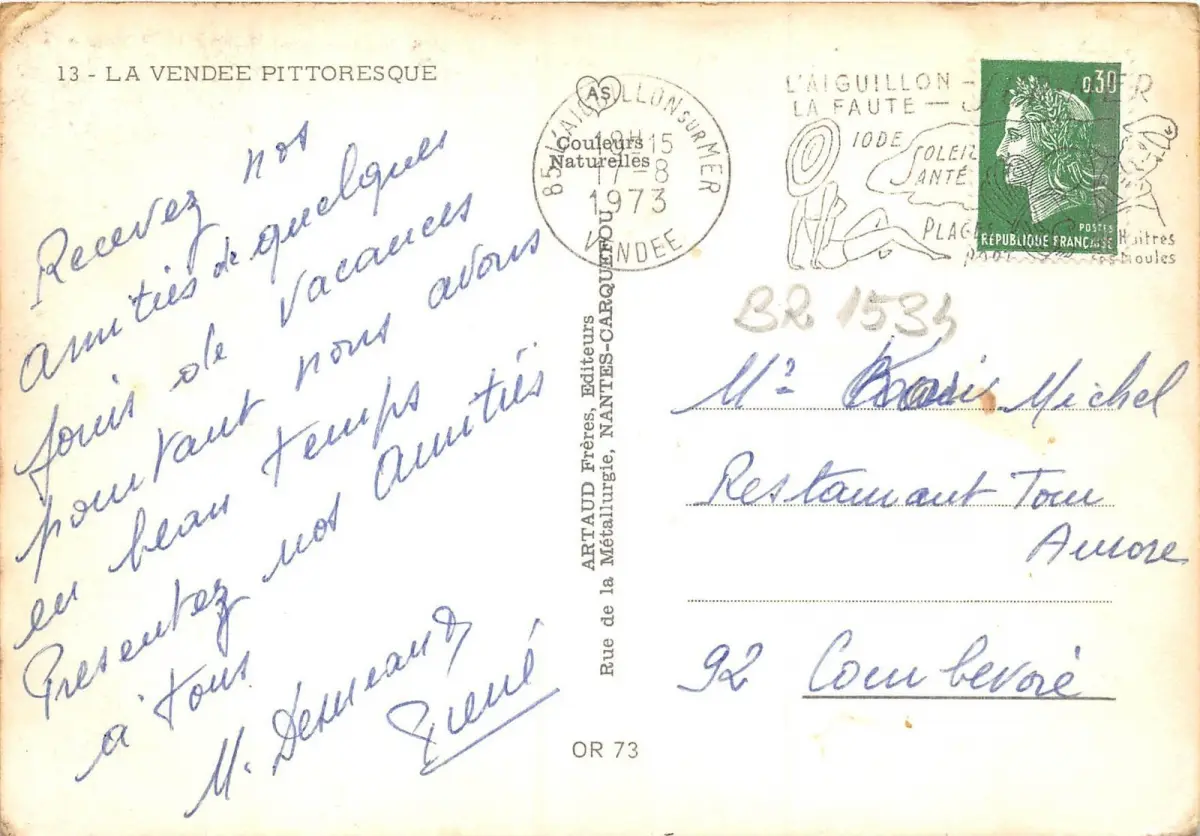 13 - LA VENDEE PITTORESQUE
Recevez nos
amitiés de quelques
jours de vacances
pourtant nous avons
eu beau temps
Presentez nos amitiés
à tous
M.
René
AS
Couleurs
Naturelles
85 L'AIGUILLON SUR MER
18H15
17-8
1973
VENDEE
L'AIGUILLON -
LA FAUTE -
IODE
SOLEIL
SANTÉ
PLAGE
Huitres
Moules
0,30
POSTES
RÉPUBLIQUE FRANÇAISE
BR 1534
ARTAUD Frères, Editeurs
Rue de la Métallurgie, NANTES-CARQUEFOU
Mr Michel
Restaurant Tour
Aurore
92 Courbevoie
OR 73